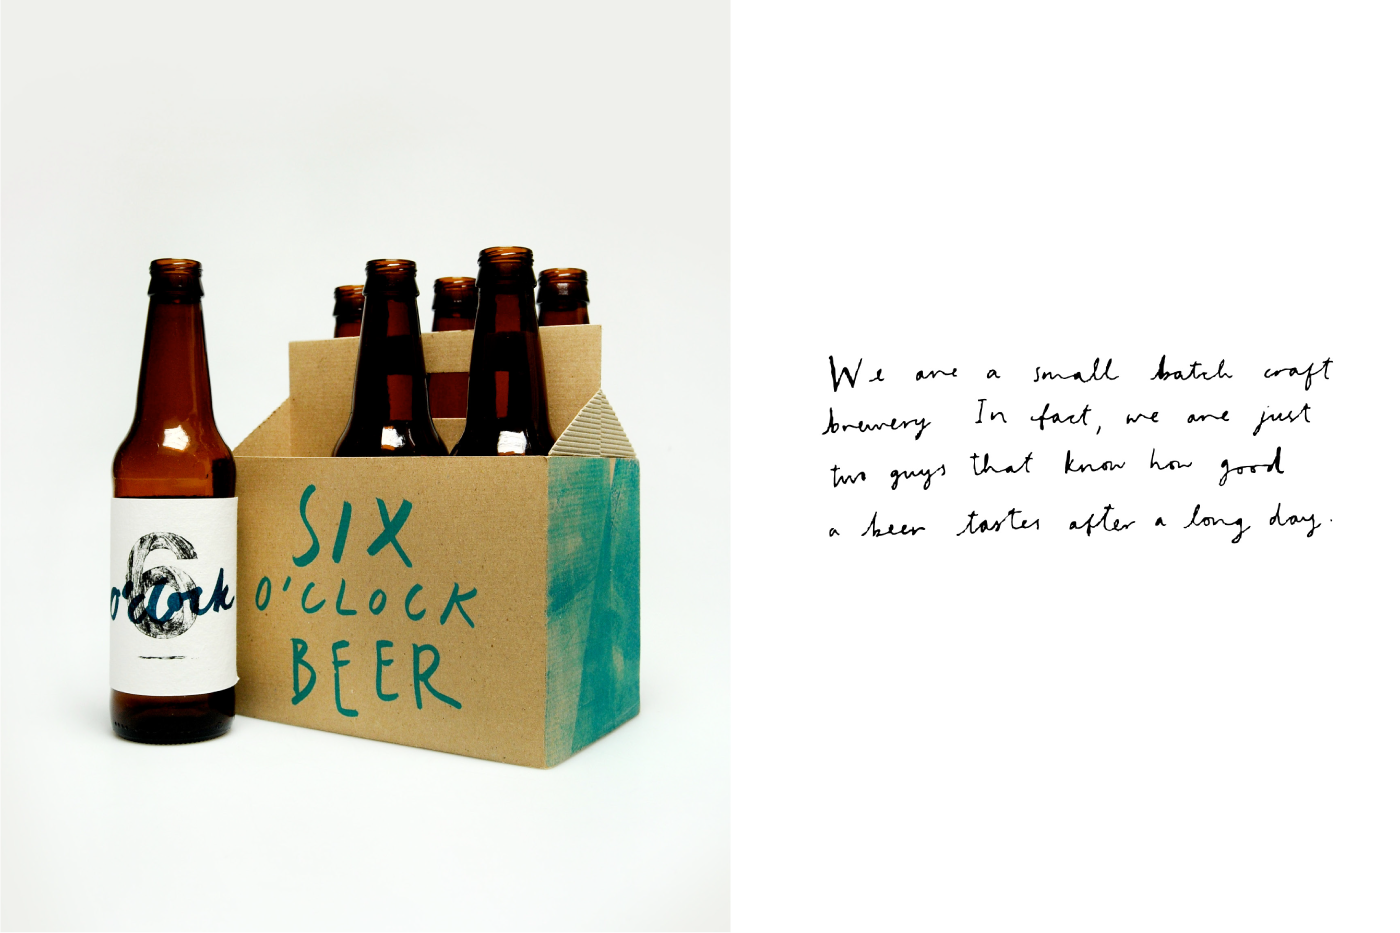 6
o'clock
SIX
O'CLOCK
BEER
We are a small batch craft
brewery In fact, we are just
two guys that know how good
a beer tastes after a long day.